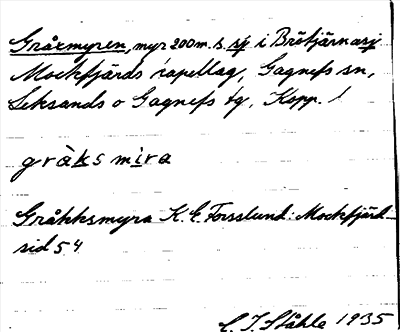 Gråxmyren, myr 200 m. s. sj i Brötjärnasj
Mockfjärds capellag, Gagnefs sn,
Leksands o Gagnefs tg, Kopp. l
gràksmira
Gråkksmyra K. E. Forsslund: Mockfjärd
sid 54
C. I. Ståhle 1935